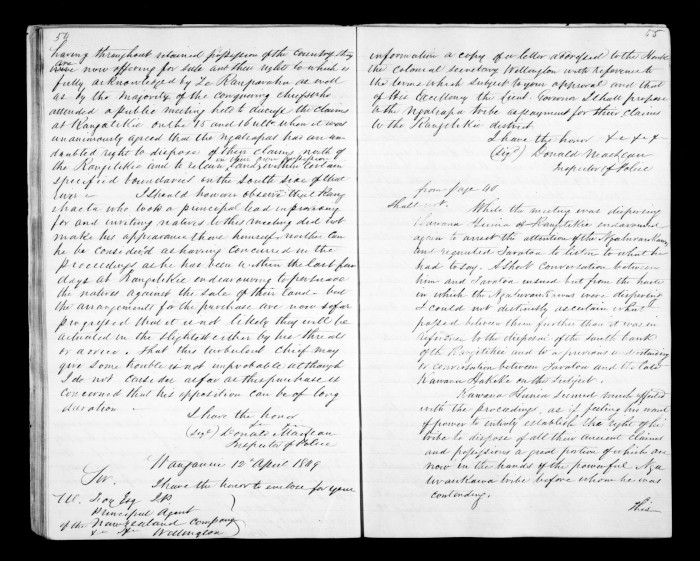 54
having throughout retained possession of the country they
are now offering for sale and their right to which is
fully acknowledged by Te Rauparaha as well
as by the majority of the Chiefs who
attended a public meeting held to discuss the claims
at Rangitikie on the 15 and 16 ult when it was
unanimously agreed that the Ngatiapas has an un-
doubted right to dispose of their claims north of
the Rangitikie and to retain in their own possession land within certain
specified boundaries on the South side of that
I should however observe that Rangi
haeta who took a principal lead in pressing
for and inviting natives to this meeting did not
make his appearance there himself neither can
he be consider'd as having concurred in the
proceedings as he has been within the last few
days at Rangitikie endeavouring to persuade
the natives against the sale of their land - but
the arrangements for the purchase are now so far
progressed that it is not likely they will be
actuated in the slightest either by his threats
or advice - that this turbulent chief may
give some trouble is not improbable although
I do not consider as far as this purchase is
concerned that his opposition can be of long
duration -
I have the honor
(Sigd) Donald MacLean
Inspector of Police
Wanganui 12th April 1849
Sir.
I have the honor to enclose for your
W. Fox Esq J.P.
Principal Agent
of the New Zealand Company
&c &c Wellington
55
information a copy of a letter addressed to the Honble
the Colonial Secretary Wellington with reference to
the terms which subject to your approval and that
of His Excellency the Lieut Governor I shall propose
to the Ngatiapa tribe as payment for their claims
to the Rangitikie district
I have the honor &c &c &c
(Sigd) Donald MacLean
Inspector of Police
from page 40
shall not.
While the meeting was dispersing
Kawana Hunia of Rangitikie endeavoured
again to arrest the attention of the Ngatiraukawa
and requested Taratoa to listen to what he
had to say. A short conversation between
him and Taratoa ensued but from the haste
in which the Ngatiraukawas were dispersing
I could not distinctly ascertain what
passed between them further than it was in
reference to the disposal of the South bank
of the Rangitikie and to a previous understanding
or conversation between Taratoa and the late
Kawana Hakeke on the subject.
Kawana Hunia seemed much affected
with the proceedings, as if feeling his want
of power to entirely establish the right of his
tribe to dispose of all their ancient claims
and possessions a great portion of which are
now in the hands of the powerful Nga
tiraukawa tribe before whom he was
contending.
This